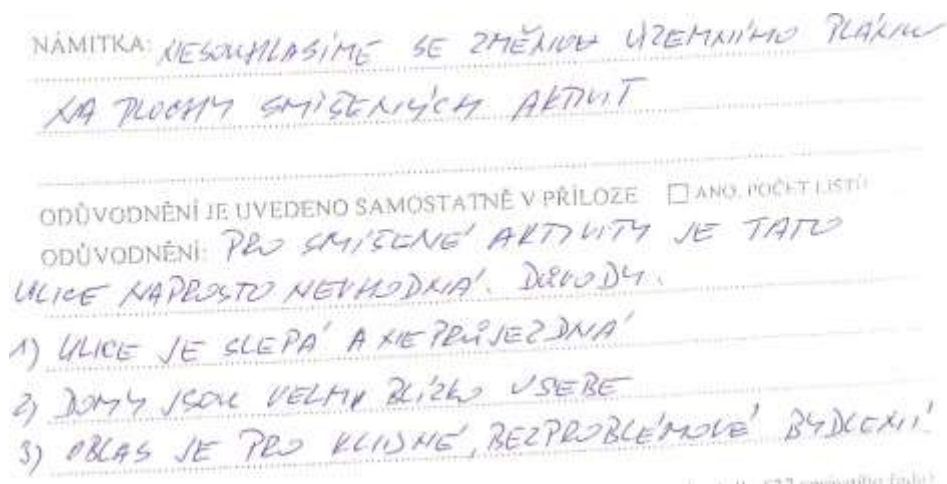 NÁMITKA: NESOUHLASÍME SE ZMĚNOU ÚZEMNÍHO PLÁNU
NA PLOCHY SMÍŠENÝCH AKTIVIT
ODŮVODNĚNÍ JE UVEDENO SAMOSTATNĚ V PŘÍLOZE ☐ ANO, POČET LISTŮ
ODŮVODNĚNÍ: PRO SMÍŠENÉ AKTIVITY JE TATO
ULICE NAPROSTO NEVHODNÁ. DŮVODY.
1) ULICE JE SLEPÁ A NEPRŮJEZDNÁ
2) DOMY JSOU VELMI BLÍZKO USEBE
3) OBLAS JE PRO KLIDNÉ, BEZPROBLÉMOVÉ BYDLENÍ